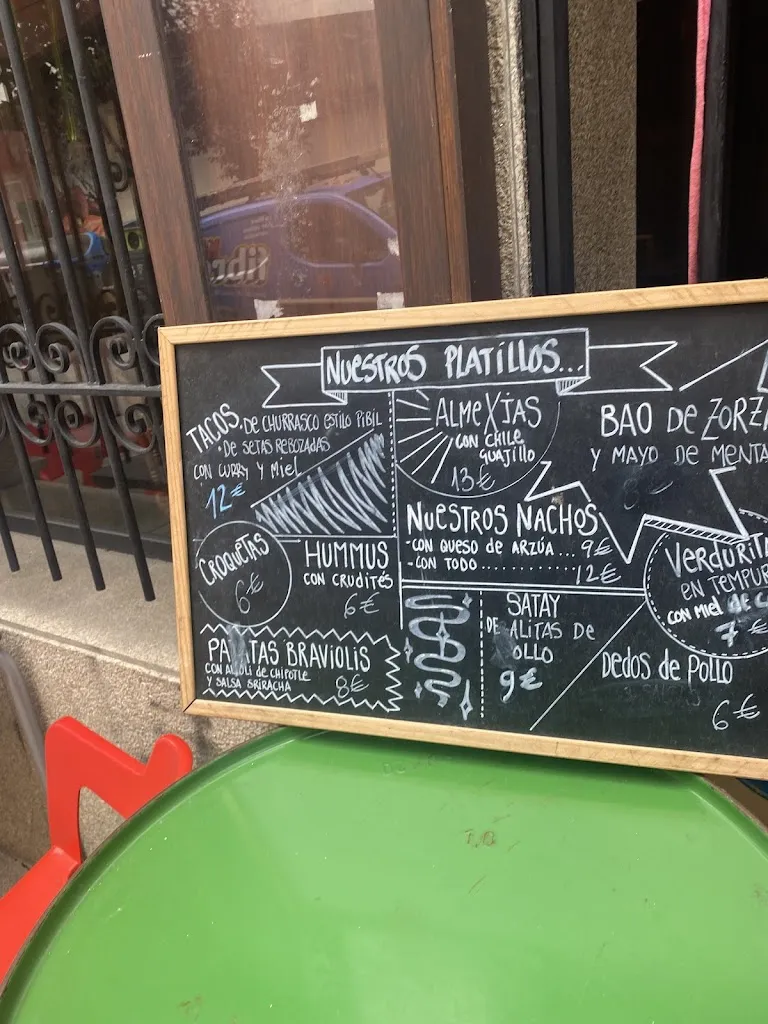 NUESTROS PLATILLOS...
TACOS • DE CHURRASCO ESTILO PIBIL
• DE SETAS REBOZADAS
CON CURRY Y MIEL
12€
ALMEXJAS
CON CHILE
GUAJILLO
13€
BAO DE
Y MAYO DE MENTA
NUESTROS NACHOS
-CON QUESO DE ARZÚA... 9€
-CON TODO.......... 12€
CROQUETAS
6€
HUMMUS
CON CRUDITÉS
6€
EN TEMPUR
CON MIEL DE
7€
SATAY
DE ALITAS DE
OLLO
9€
DEDOS DE POLLO
6€
PATATAS BRAVIOLIS
CON ALIOLI DE CHIPOTLE
Y SALSA SRIRACHA
8€